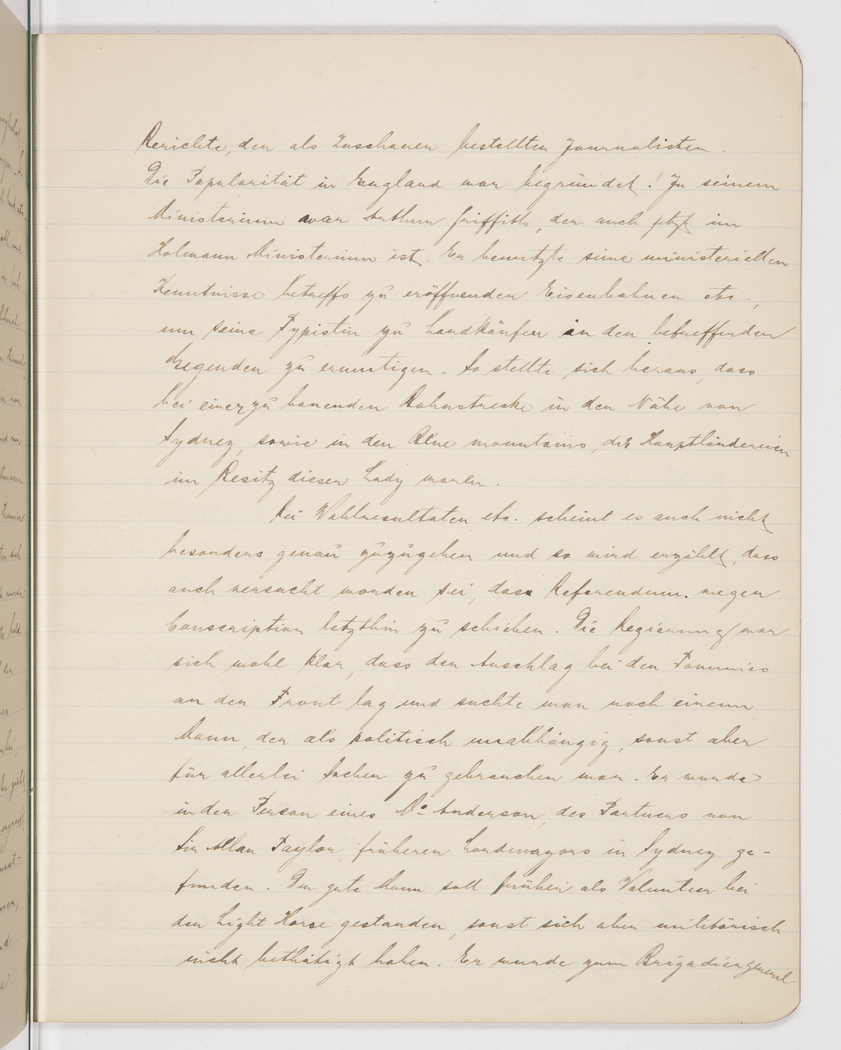 Berichte, der als Zuschauer bestellten Journalisten.
Die Popularität in England war begründet! In seinem
Ministerium war Arthur Griffith, der auch jetzt im
Holmann Ministerium ist. Er benutzte seine ministeriellen
Kenntnisse betreffs zu eröffnenden Eisenbahnen etc.,
um seine Typistin zu Landkäufen in den betreffenden
Gegenden zu ermutigen. So stellte sich heraus, dass
bei einer zu bauenden Bahnstrecke in der Nähe von
Sydney, sowie in den Blue mountains, die Hauptländereien
im Besitz dieser Lady waren.
Bei Wahlresultaten etc. scheint es auch nicht
besonders genau zuzugehen und so wird erzählt, dass
auch versucht worden sei, dass Referendum wegen
Conscription letzthin zu schieben. Die Regierung war
sich wohl klar, dass der Ausschlag bei den Tommies
an der Front lag und suchte man nach einem
Mann, der als politisch unabhängig, sonst aber
für allerlei Sachen zu gebrauchen war. Er wurde
in der Person eines Mc Anderson, des Partners von
Sir Allan Taylor, früheren Lordmayors in Sydney ge-
funden. Der gute Mann soll früher als Volunteer bei
der Light Horse gestanden, sonst sich aber militärisch
nicht bethätigt haben. Er wurde zum Brigadiergeneral